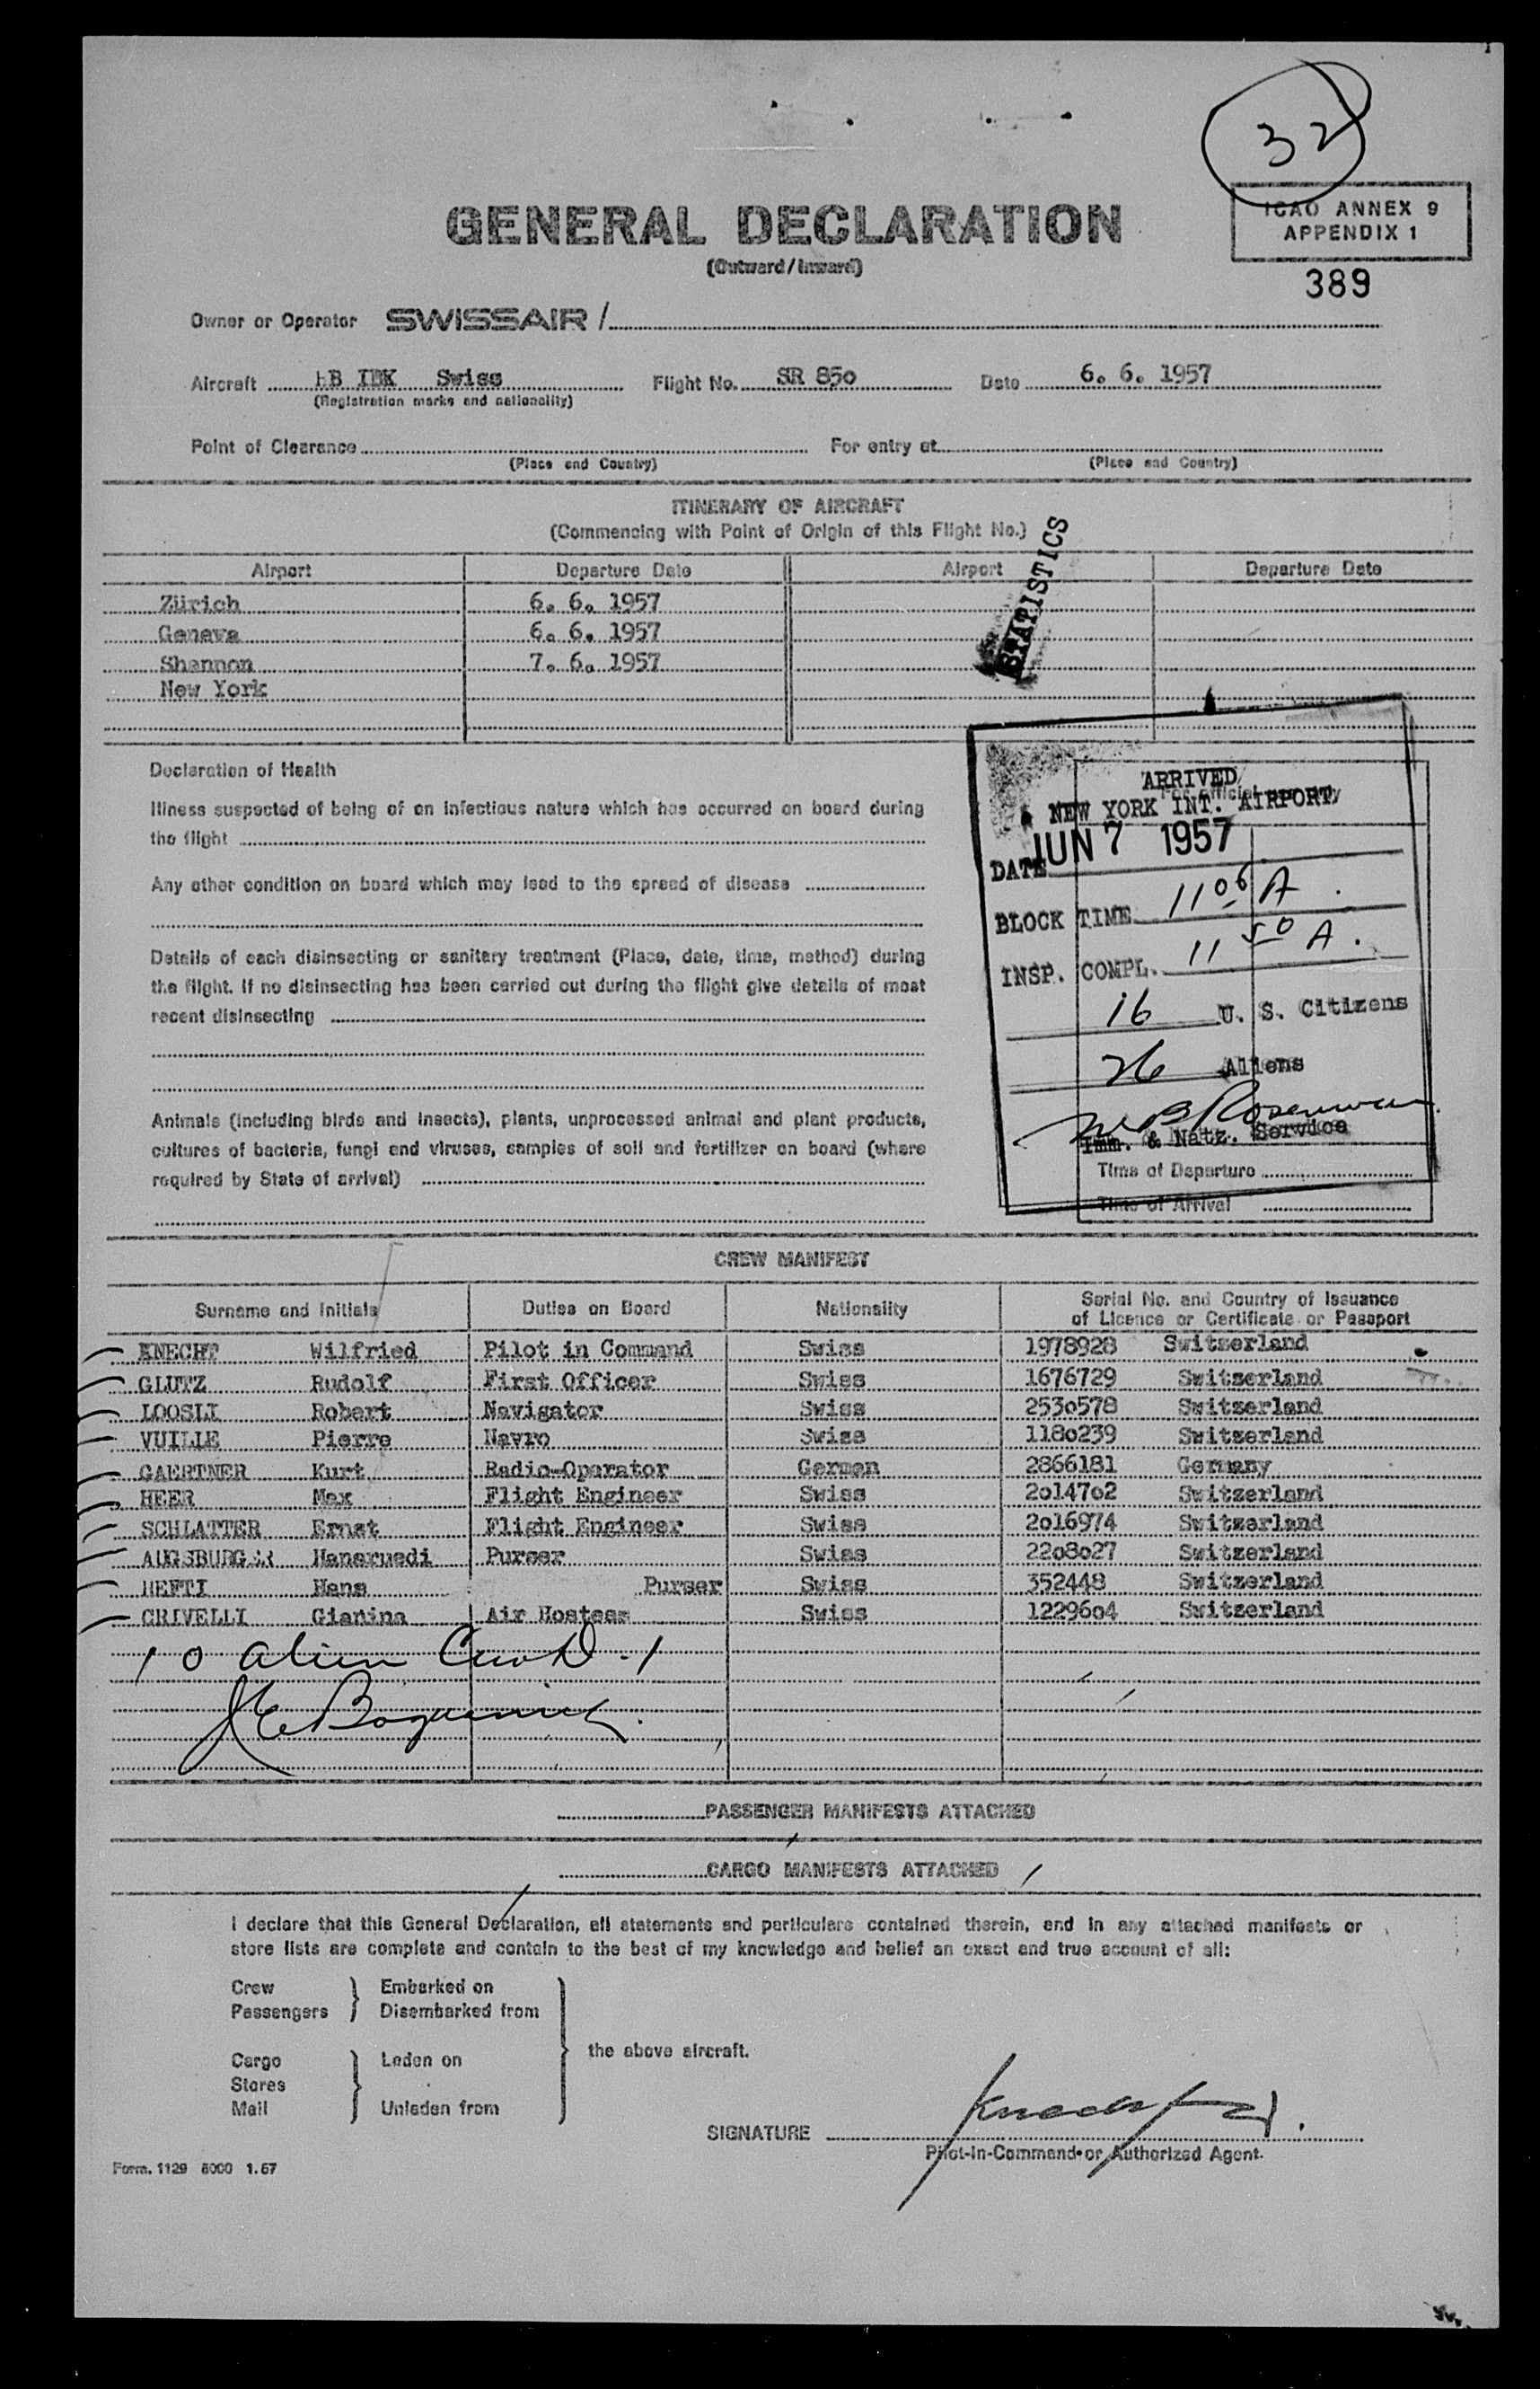 32
GENERAL DECLARATION
(Outward/Inward)
ICAO ANNEX 9
APPENDIX 1
389
Owner or Operator SWISSAIR /
Aircraft HB IBK Swiss Flight No. SR 850 Date 6. 6. 1957
(Registration marks and nationality)
Point of Clearance For entry at
(Place and Country) (Place and Country)
ITINERARY OF AIRCRAFT
(Commencing with Point of Origin of this Flight No.)
STATISTICS
Airport Departure Date Airport Departure Date
Zürich 6. 6. 1957
Geneva 6. 6. 1957
Shannon 7. 6. 1957
New York
Declaration of Health
Illness suspected of being of an infectious nature which has occurred on board during
the flight
Any other condition on board which may lead to the spread of disease
Details of each disinsecting or sanitary treatment (Place, date, time, method) during
the flight. If no disinsecting has been carried out during the flight give details of most
recent disinsecting
Animals (including birds and insects), plants, unprocessed animal and plant products,
cultures of bacteria, fungi and viruses, samples of soil and fertilizer on board (where
required by State of arrival)
For official
ARRIVED
NEW YORK INT. AIRPORT
DATE JUN 7 1957
BLOCK TIME 11 06 A
INSP. COMPL. 11 50 A.
16 U. S. Citizens
26 Aliens
Imm. & Natz. Service
Time of Departure
Time of Arrival
CREW MANIFEST
Surname and Initials Duties on Board Nationality Serial No. and Country of Issuance
of Licence or Certificate or Passport
KNECHT Wilfried Pilot in Command Swiss 1978928 Switzerland
GLUTZ Rudolf First Officer Swiss 1676729 Switzerland
LOOSLI Robert Navigator Swiss 2530578 Switzerland
VUILLE Pierre Navro Swiss 1180239 Switzerland
GAERTNER Kurt Radio-Operator German 2866181 Germany
HEER Max Flight Engineer Swiss 2014702 Switzerland
SCHLATTER Ernst Flight Engineer Swiss 2016974 Switzerland
AUGSBURGER Hansruedi Purser Swiss 2208027 Switzerland
HEFTI Hans Purser Swiss 352448 Switzerland
CRIVELLI Gianina Air Hostess Swiss 1229604 Switzerland
10 alien
PASSENGER MANIFESTS ATTACHED
CARGO MANIFESTS ATTACHED
I declare that this General Declaration, all statements and particulars contained therein, and in any attached manifests or
store lists are complete and contain to the best of my knowledge and belief an exact and true account of all:
Crew Embarked on
Passengers Disembarked from
the above aircraft.
Cargo Laden on
Stores
Mail Unladen from
SIGNATURE
Pilot-in-Command or Authorized Agent.
Form. 1129 5000 1.57